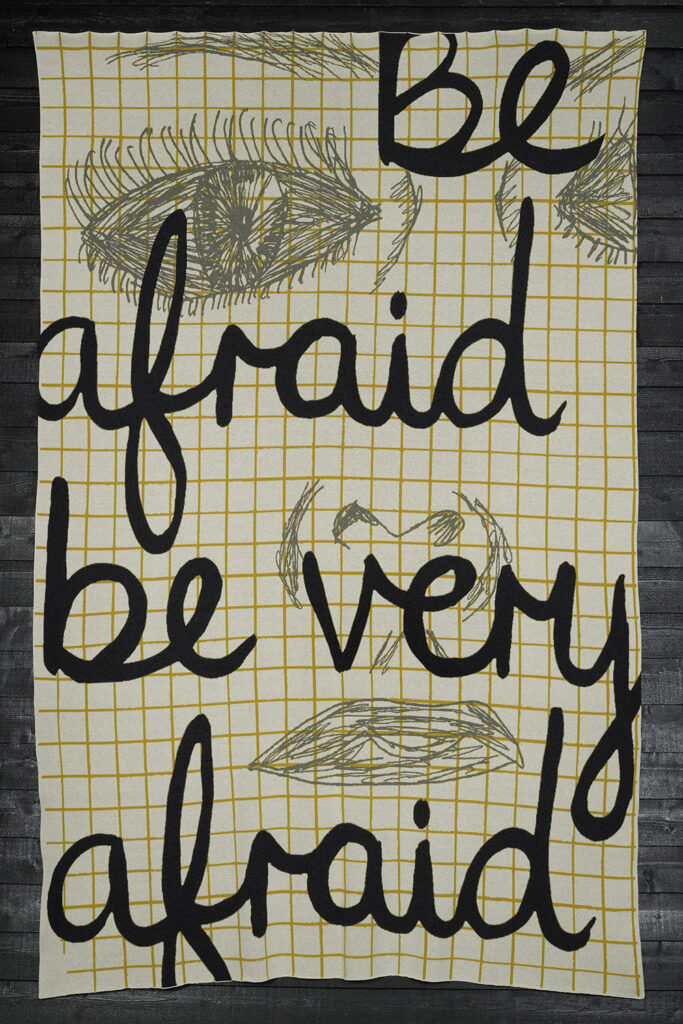 Be
afraid
be very
afraid